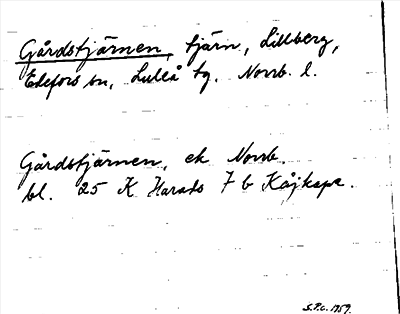 Gårdstjärnen, tjärn, Lillberg,
Edefors sn, Luleå tg. Norrb. l.
Gårdstjärnen, ek Norrb.
bl. 25 K Harads 7 b Kåjkspr.
S.P.C. 1959.